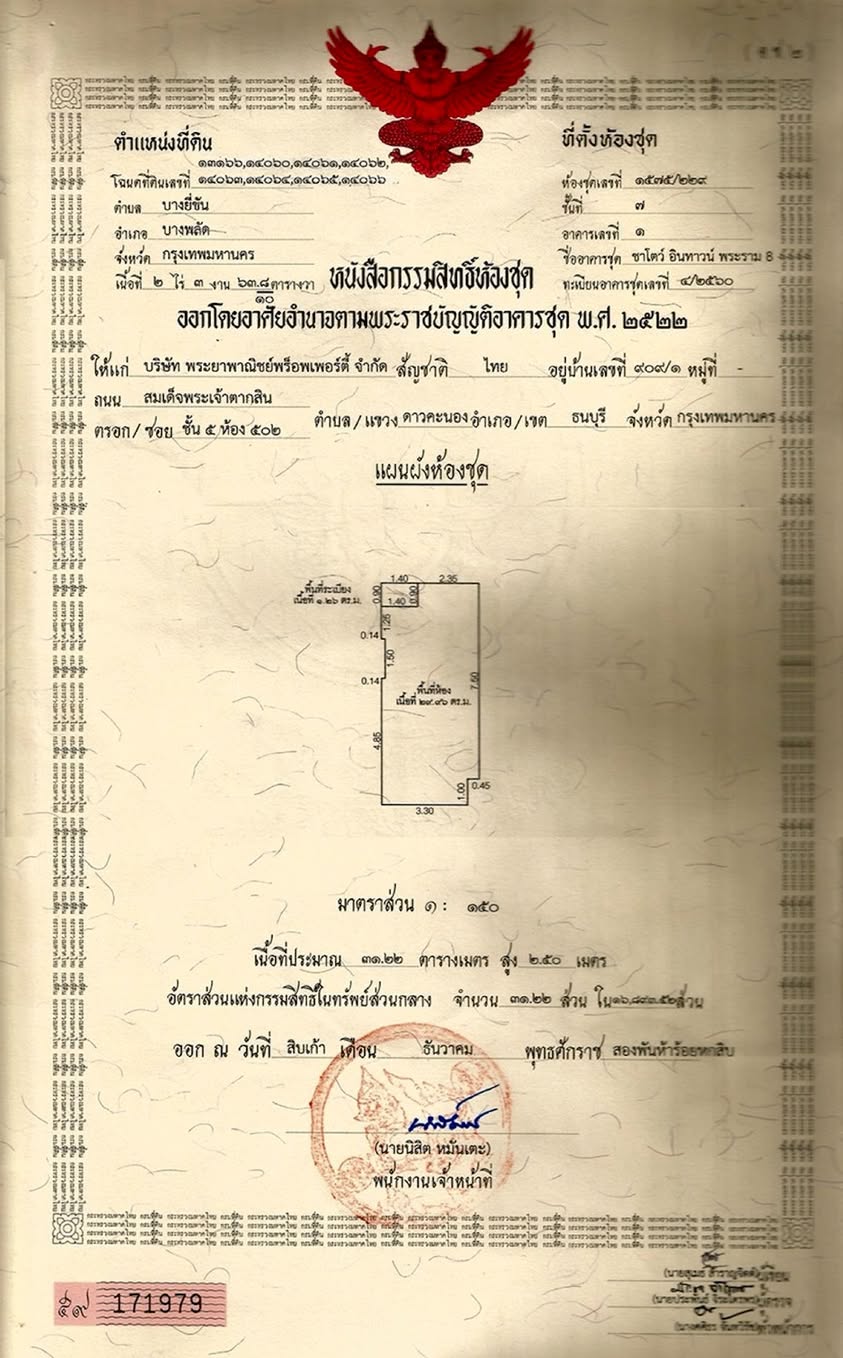 ( อ.ช.๒ )
ตำแหน่งที่ดิน
๑๓๑๖๖,๑๔๐๖๐,๑๔๐๖๑,๑๔๐๖๒,
โฉนดที่ดินเลขที่ ๑๔๐๖๓,๑๔๐๖๔,๑๔๐๖๕,๑๔๐๖๖
ตำบล บางยี่ขัน
อำเภอ บางพลัด
จังหวัด กรุงเทพมหานคร
เนื้อที่ ๒ ไร่ ๓ งาน ๖๓.๘/๑๐ ตารางวา
ที่ตั้งห้องชุด
ห้องชุดเลขที่ ๑๕๗๕/๒๒๙
ชั้นที่ ๗
อาคารเลขที่ ๑
ชื่ออาคารชุด ชาโตว์ อินทาวน์ พระราม 8
ทะเบียนอาคารชุดเลขที่ ๔/๒๕๖๐
หนังสือกรรมสิทธิ์ห้องชุด
ออกโดยอาศัยอำนาจตามพระราชบัญญัติอาคารชุด พ.ศ. ๒๕๒๒
ให้แก่ บริษัท พระยาพาณิชย์พร็อพเพอร์ตี้ จำกัด สัญชาติ ไทย อยู่บ้านเลขที่ ๙๐๙/๑ หมู่ที่ -
ถนน สมเด็จพระเจ้าตากสิน
ตรอก/ซอย ชั้น ๕ ห้อง ๕๐๒ ตำบล/แขวง ดาวคะนอง อำเภอ/เขต ธนบุรี จังหวัด กรุงเทพมหานคร
แผนผังห้องชุด
1.40 2.35
พื้นที่ระเบียง
เนื้อที่ ๑.๒๖ ตร.ม.
0.90 1.40 0.90
1.25
0.14
1.50
0.14
พื้นที่ห้อง
เนื้อที่ ๒๙.๙๖ ตร.ม.
7.60
4.85
1.00 0.45
3.30
มาตราส่วน ๑ : ๑๕๐
เนื้อที่ประมาณ ๓๑.๒๒ ตารางเมตร สูง ๒.๕๐ เมตร
อัตราส่วนแห่งกรรมสิทธิ์ในทรัพย์ส่วนกลาง จำนวน ๓๑.๒๒ ส่วน ใน ๑๖,๘๙๓.๕๒ ส่วน
ออก ณ วันที่ สิบเก้า เดือน ธันวาคม พุทธศักราช สองพันห้าร้อยหกสิบ
(นายนิสิต หมันเตะ)
พนักงานเจ้าหน้าที่
๕๙ 171979